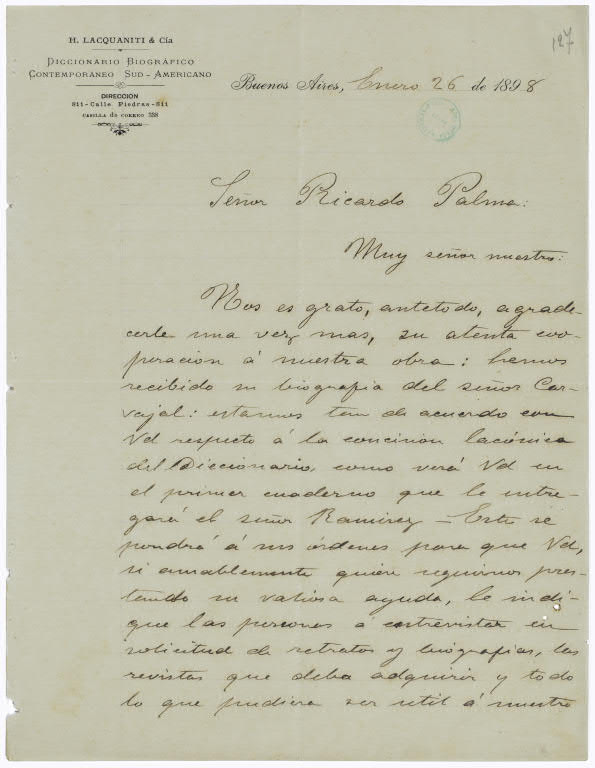 127
H. LACQUANITI & Cía
DICCIONARIO BIOGRÁFICO
CONTEMPORANEO SUD-AMERICANO
DIRECCION
811-Calle Piedras-811
CASILLA de CORREO 358
Buenos Aires, Enero 26 de 1898
Señor Ricardo Palma:
Muy señor nuestro:
Nos es grato, antetodo, agrade-
cerle una vez mas, su atenta coo-
peracion á nuestra obra: hemos
recibido su biografia del señor Car-
vajal: estamos tan de acuerdo con
Vd respecto á la concision lacónica
del Diccionario, como verá Vd en
el primer cuaderno que le entre-
gará el señor Ramirez - Este se
pondrá á sus órdenes para que Vd,
si amablemente quiere seguirnos pres-
tando su valiosa ayuda, le indi-
que las personas á entrevistar en
solicitud de retratos y biografias, las
revistas que deba adquirir y todo
lo que pudiera ser util á nuestro